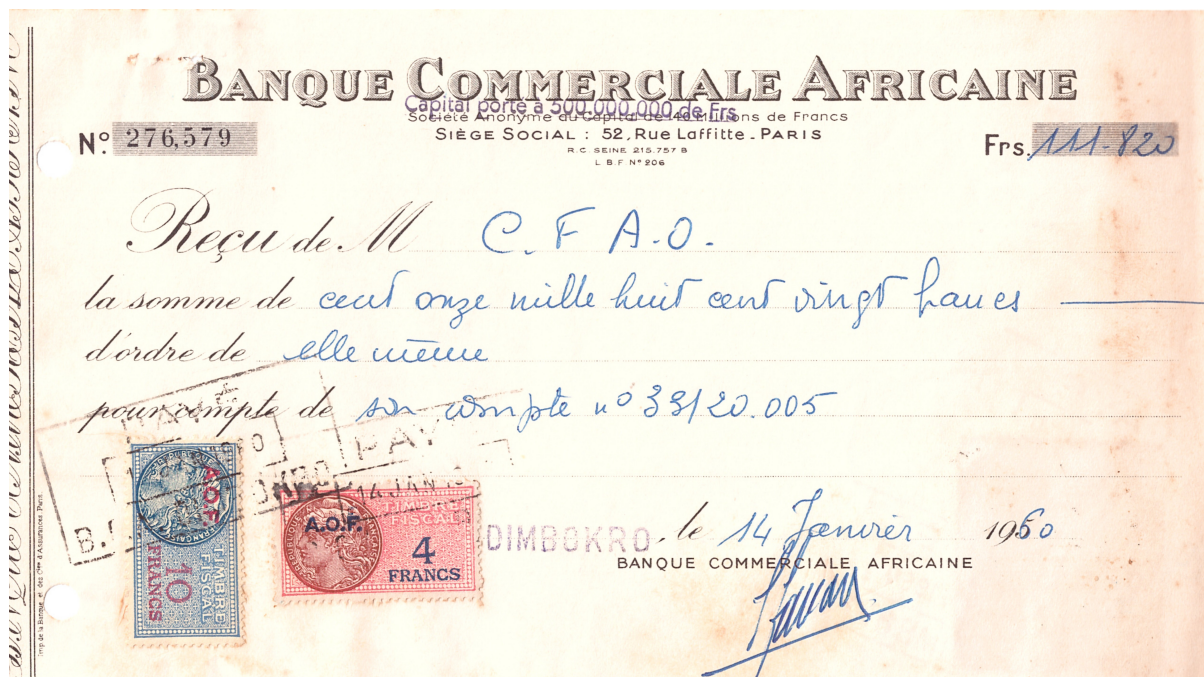 BANQUE COMMERCIALE AFRICAINE
Capital porté à 500.000.000 de Frs
Société Anonyme au Capital de 140 Millions de Francs
SIÈGE SOCIAL : 52, Rue Laffitte - PARIS
R.C. SEINE 215.757 B
L.B.F. N° 206
N° 276,579
Frs. 111-820
Reçu de M C.F.A.O.
la somme de cent onze mille huit cent vingt francs
d'ordre de elle même
pour compte de son compte n° 33/20.005
PAYÉ
14 JAN
A.O.F.
TIMBRE FISCAL
10 FRANCS
A.O.F.
TIMBRE FISCAL
4 FRANCS
DIMBOKRO, le 14 Janvier 1960
BANQUE COMMERCIALE AFRICAINE